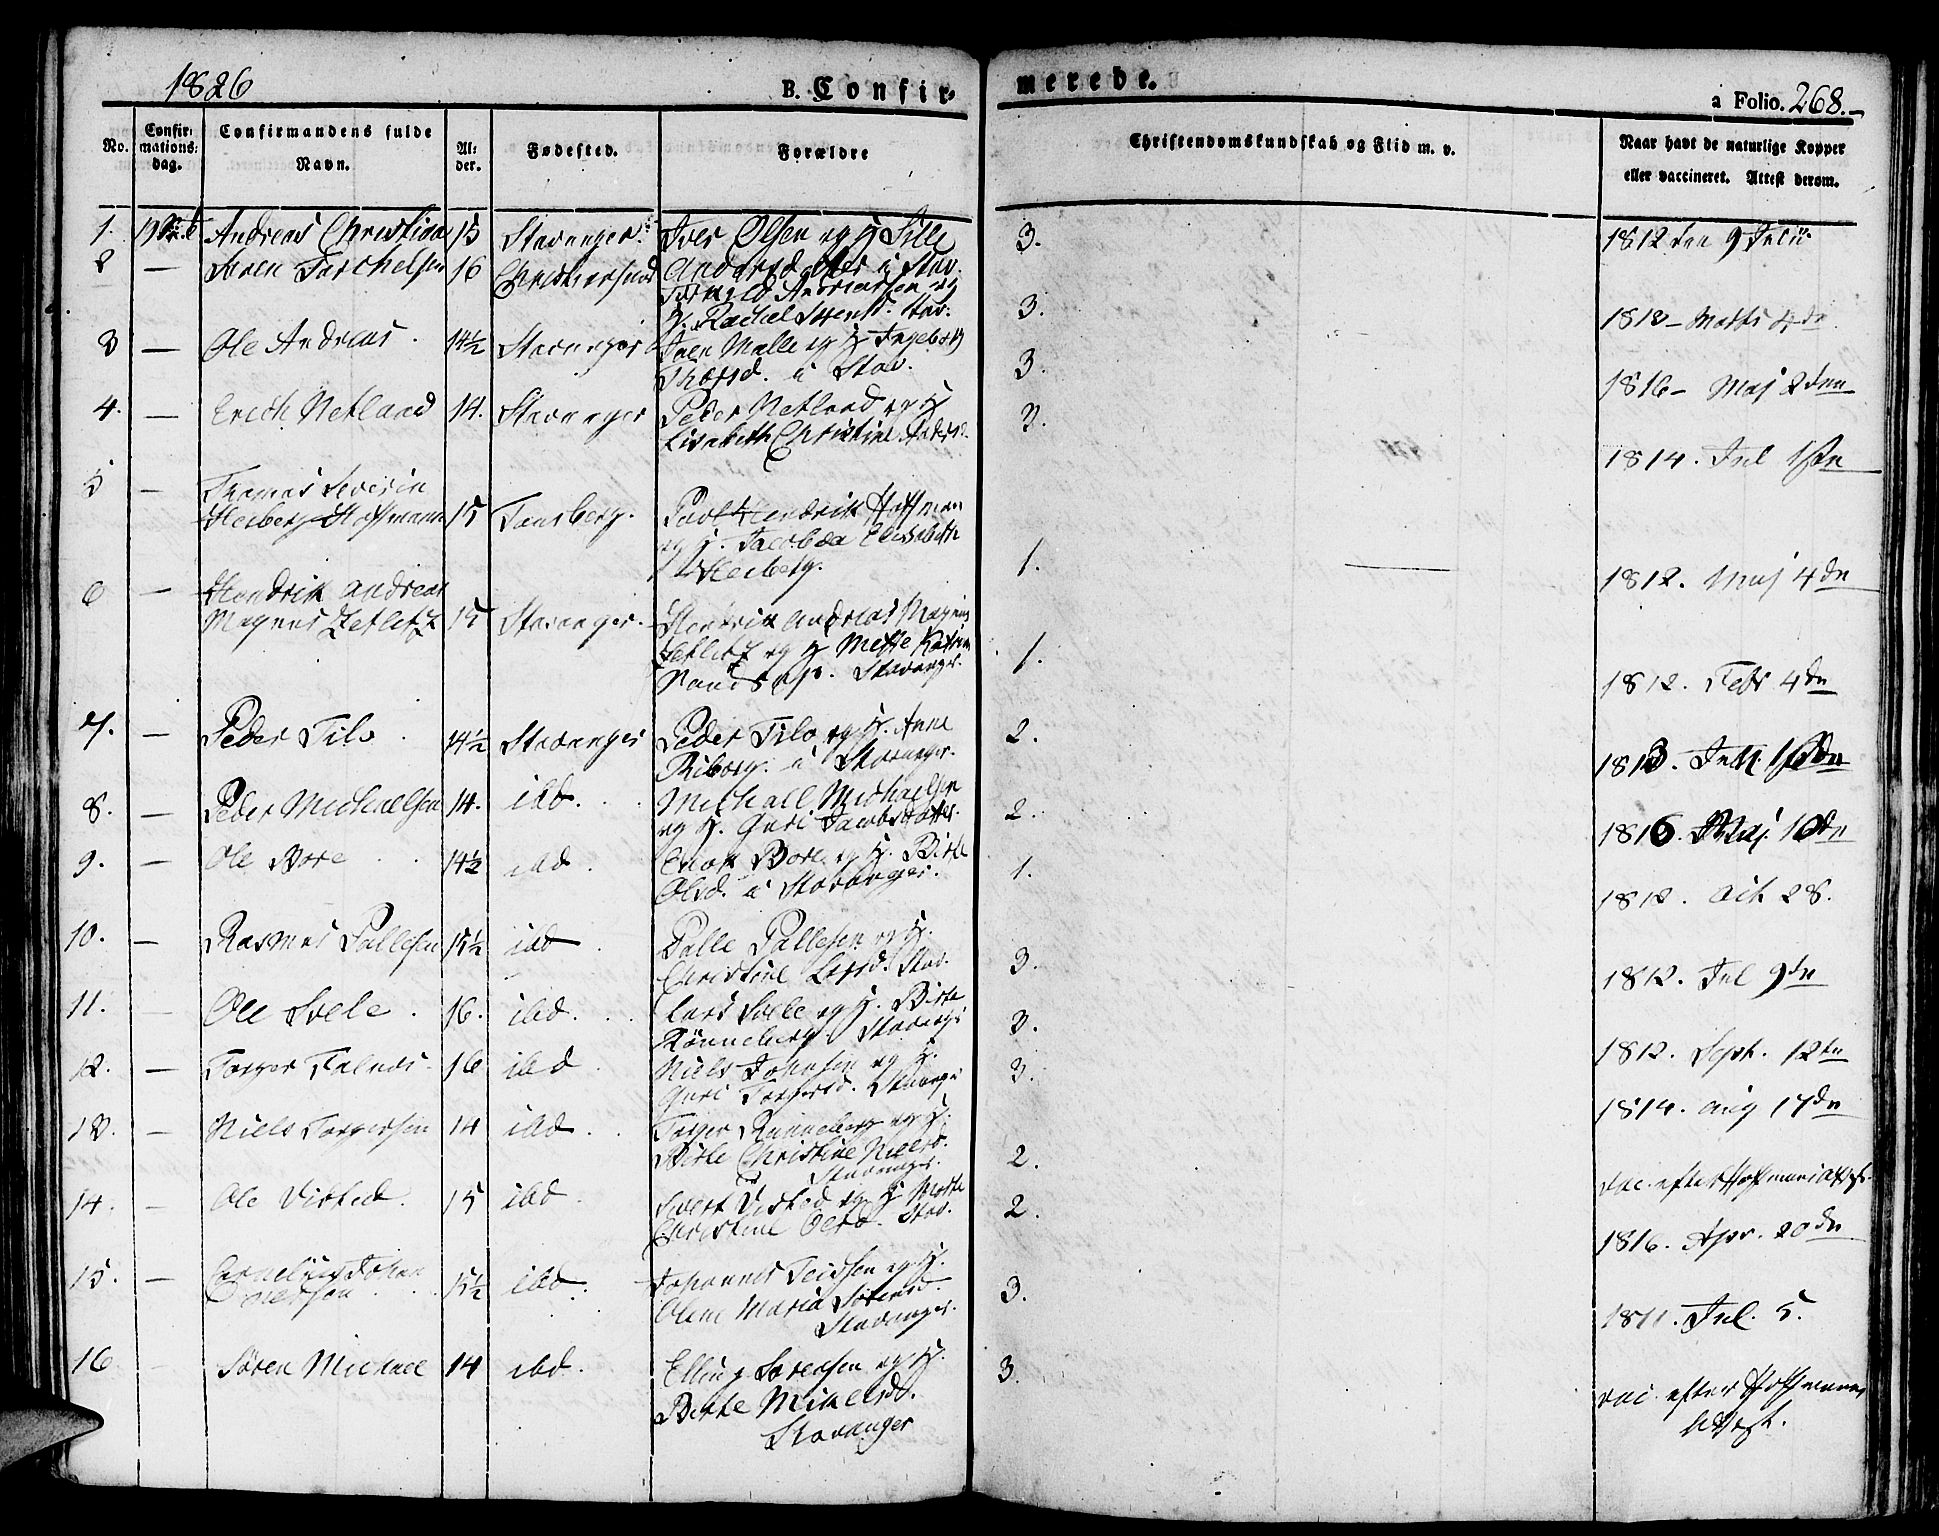 1826
B. Confir-
merede.
a Folio. 268.
No.
Confir-
mations-
dag.
Confirmandens fulde
Navn.
Al-
der.
Fødested.
Forældre
Christendomskundskab og Flid m. v.
Naar havt de naturlige Kopper
eller vaccineret. Attest derom.
1. Andreas Christian 15 Stavanger. Iver Olsen og H Sille 3. 1812 den 9 Julii
2 — Sven Torchelsen 16 Christiansund Andersdatter i Stav.
Andreassen og
H. Rachel Svensd. Stav. 3. 1813 — Marts 4de
3 — Ole Andreas. 14½ Stavanger Sven Malle og H Ingeborg 3.
Thorsd. i Stav. 1816 — Maj 2den
4. — Erich Netland 14. Stavanger Peder Netland og H 3.
Lisabeth Christine Andersd. 1814. Jul 1ste
5 — Thomas Severin
Heiberg Hoffmann 15 Tonsberg. Povl Hendrik Hoffman
og H. Jacobæa Elisabeth
Heiberg. 1. — 1812. Maj 4de
6 — Hendrik Andreas
Magnus Zetlitz 15 Stavanger. Hendrik Andreas Magnus
Zetlitz og H Mette Katrine 1.
Stavanger. 1812. Febr 4de
7. — Peder Tilo 14½ Stavanger Peder Tilo og H. Anne 2.
Riborg. i Stavanger. 1813.
8. — Peder Michaelsen 14. ibd. Michall Michaelsen 2.
og H. Guri Jacobsdatter. 1816. Maj. 10de
9. — Ole Bore 14½ ibd. Enok Bore og H. Birte 1.
Olsd. i Stavanger. 1812. Oct 28.
10. — Rasmus Pallesen 15½ ibd. Palle Pallesen og H.
Christine Larsd. Stav. 3. 1812. Jul 9de
11. — Ole Svele. 16. ibd. Lars Svele og H. Birte 3.
Rönneberg. Stavanger 1812. Sept. 12te
12. — Torger Falnes. 16 ibd Niels Johnsen og H. 3.
Guri Torgersd. Stavanger 1814. Aug 17de
13. — Niels Torgersen 14 ibd. Torger Rønneberg og H.
Birte Christine Nielsd. 2.
Stavanger. vac. efter Hofmans Attest.
14. — Ole Visted. 15 ibd. Sivert Visted og H Mette 2.
Christine Olsd. Stav. 1816. Apr. 20de
15. — Cornelius Johan
15½ ibd. Johannes Teissen og H. 3.
Olene Maria Sörensd.
Stavanger. 1811. Jul. 5.
16 — Sören Michael 14 ibd. Elling Sørensen og H. 3.
Birte Mikelsd. vac. efter Hoffmanns
Stavanger Attest.